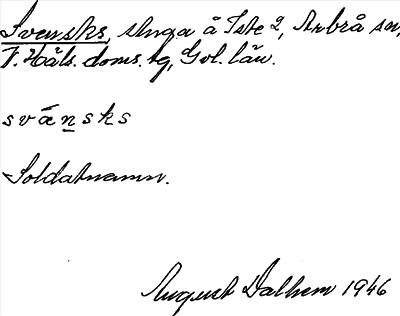 Svensks, stuga å Iste 2, Arbrå sn,
V. Häls. doms. tg, Gvl. län.
svänsks
Soldatnamn.
August Dalhem 1946